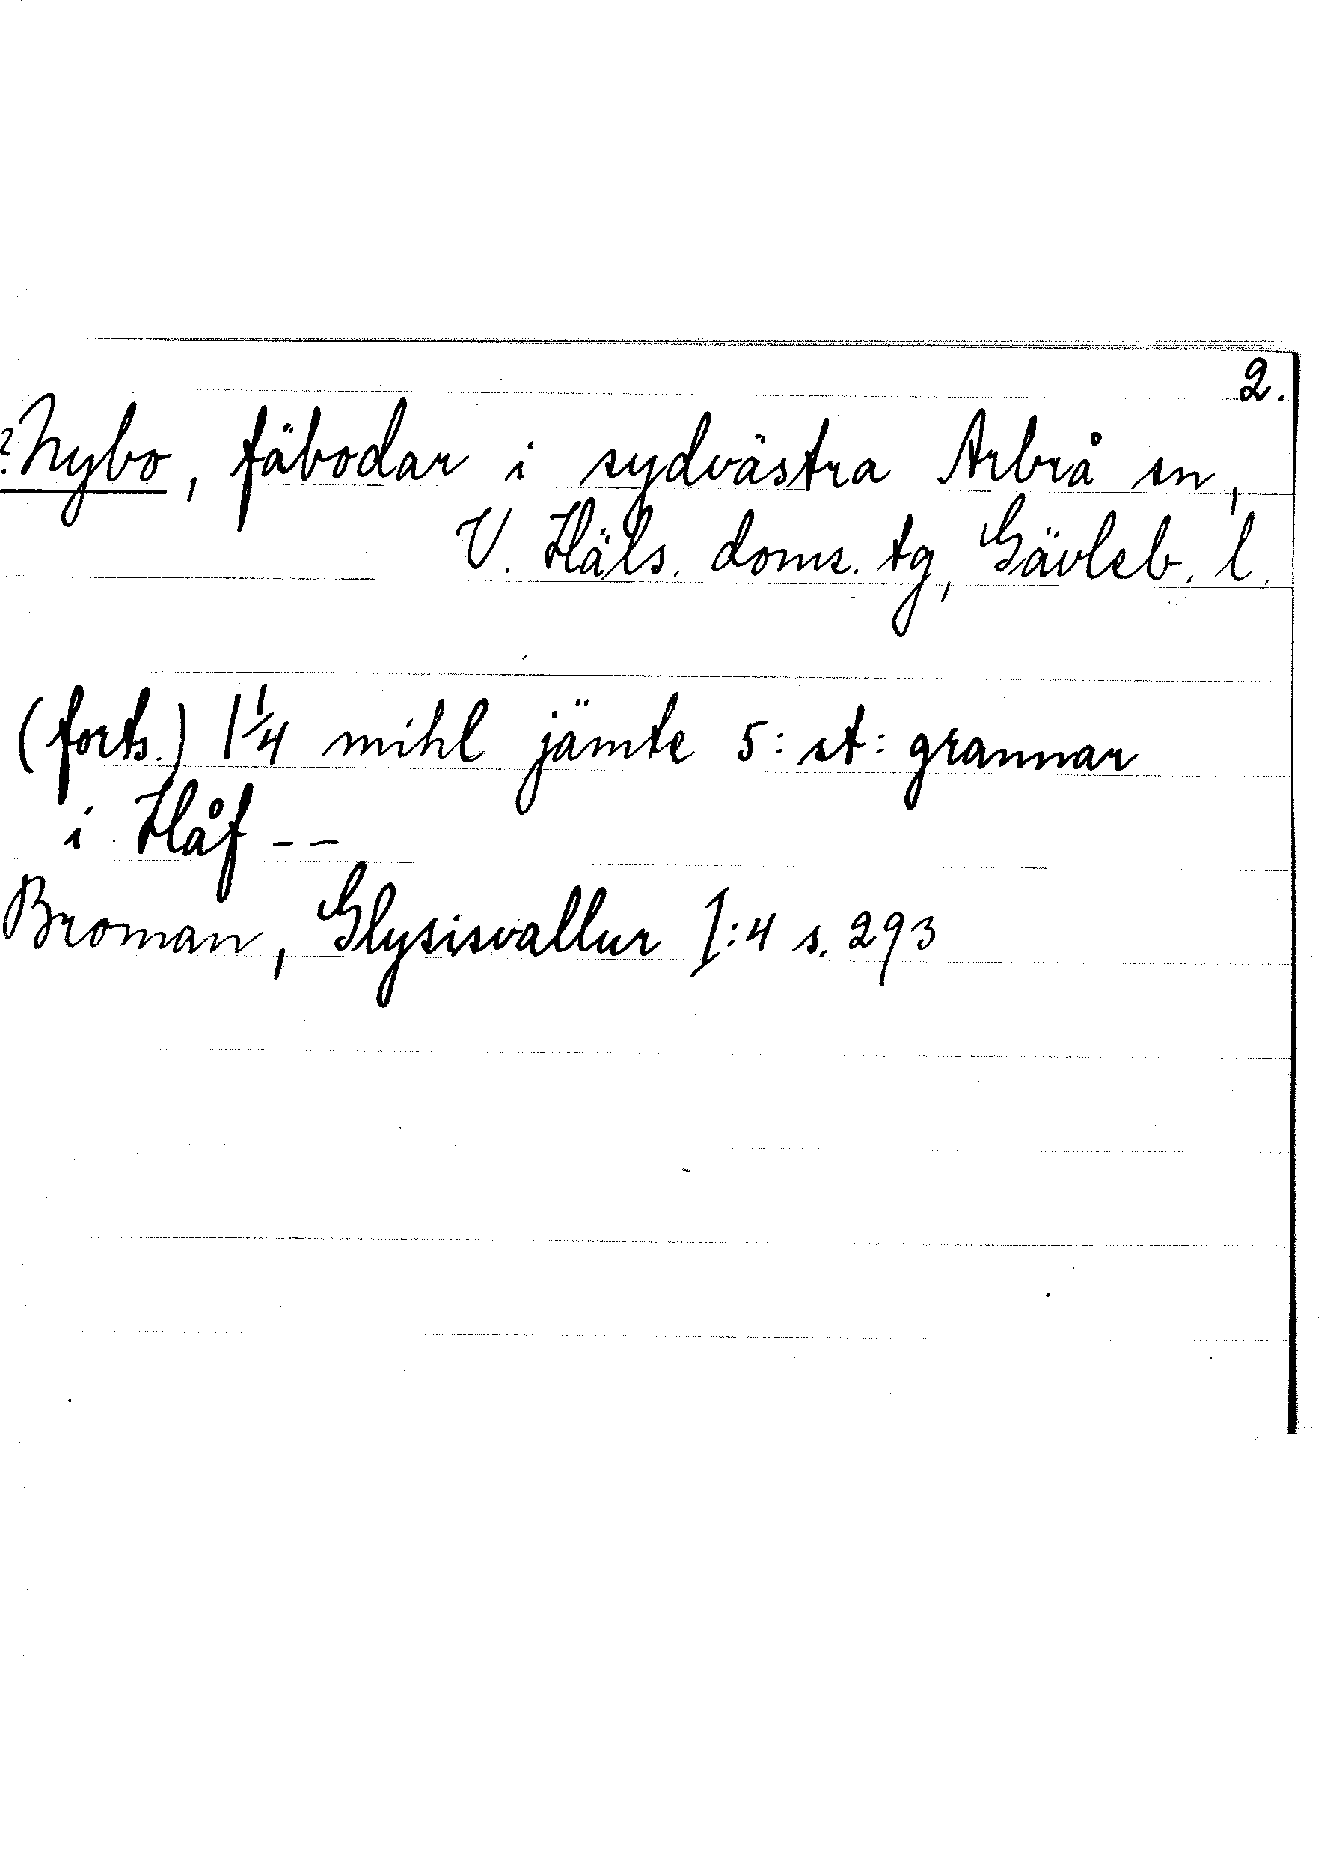 2.
? Nybo, fäbodar i sydvästra Arbrå sn,
V. Häls. doms. tg, Gävleb. l.
(forts.) 1 1/4 mihl jämte 5: st: grannar
i Håf --
Broman, Glysisvallur I:4 s. 293